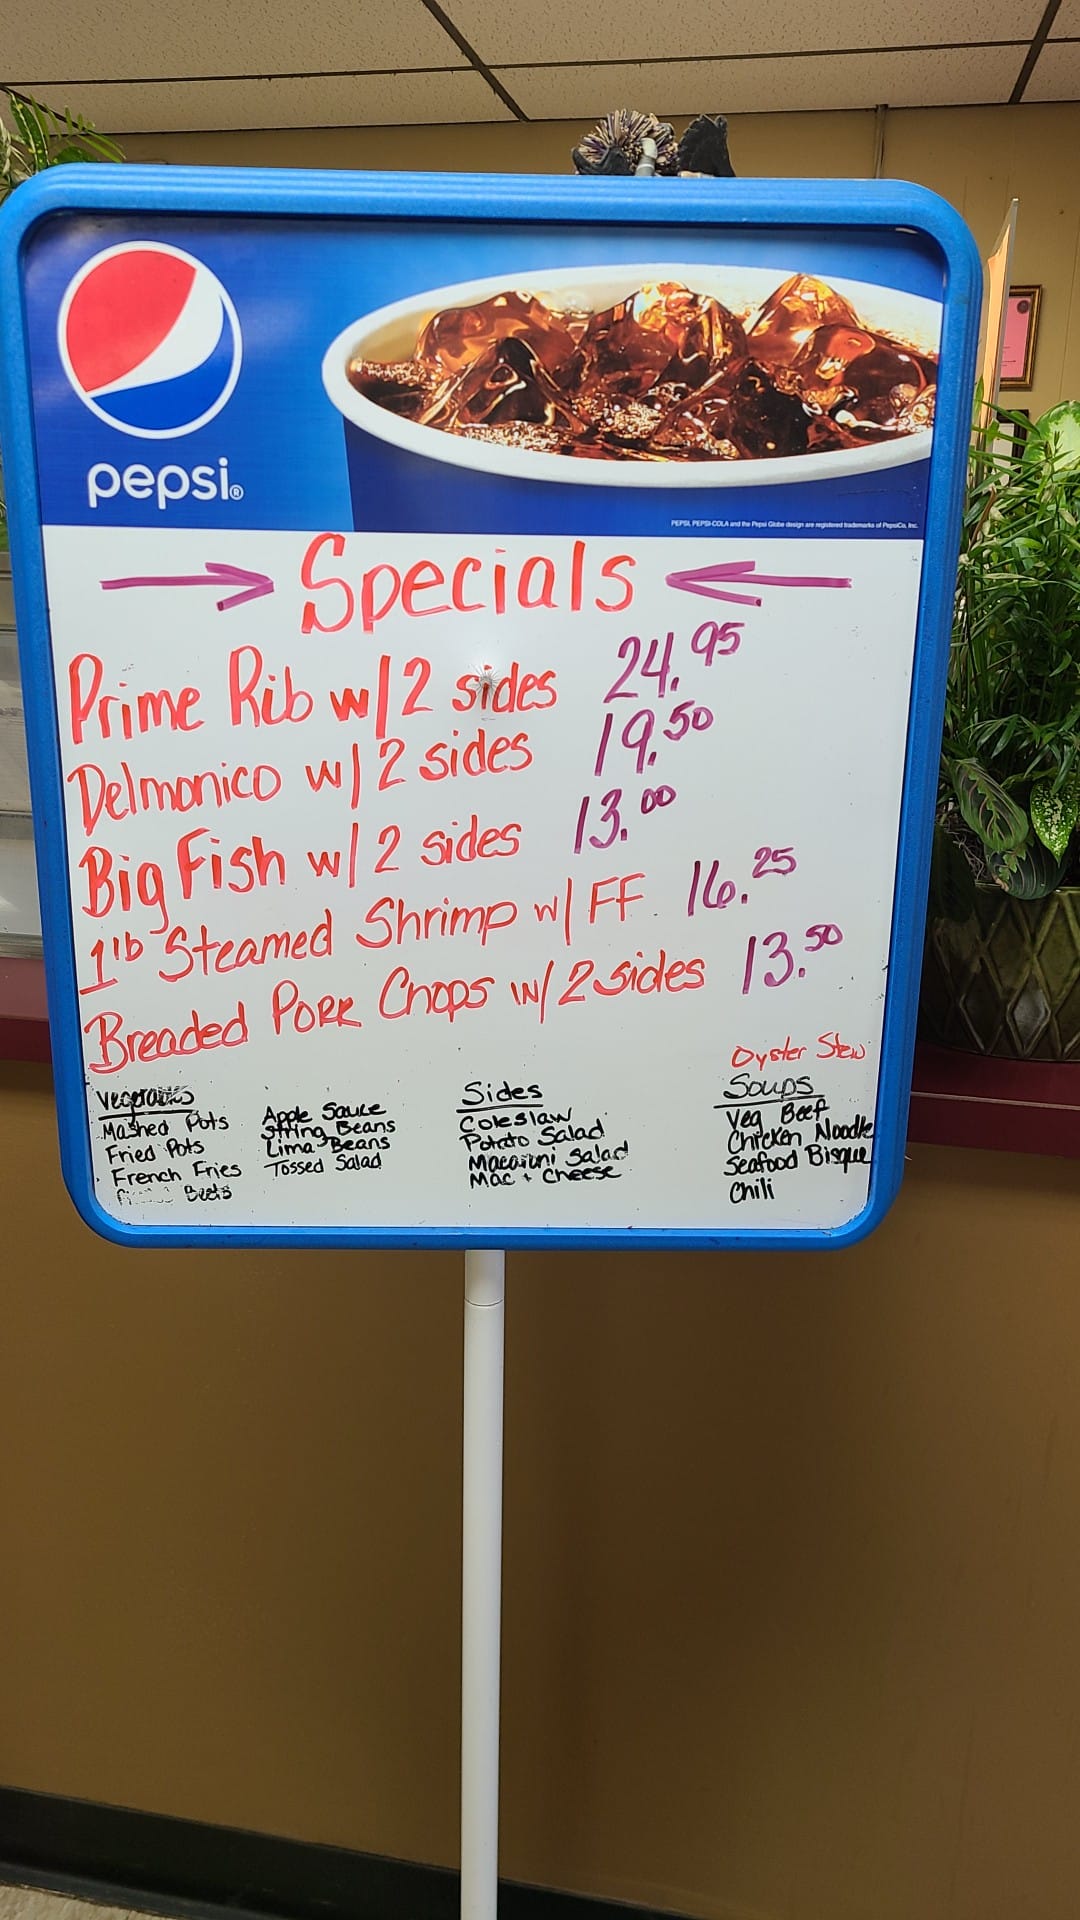 pepsi®
PEPSI, PEPSI-COLA and the Pepsi Globe design are registered trademarks of PepsiCo, Inc.
Specials
Prime Rib w/2 sides 24.95
Delmonico w/2 sides 19.50
Big Fish w/2 sides 13.00
1 lb Steamed Shrimp w/ FF 16.25
Breaded Pork Chops w/2 sides 13.50
Mashed Pots
Fried Pots
French Fries
Beets
Apple Sauce
String Beans
Lima Beans
Tossed Salad
Sides
Coleslaw
Potato Salad
Macaroni Salad
Mac + Cheese
Oyster Stew
Soups
Veg Beef
Chicken Noodle
Seafood Bisque
Chili